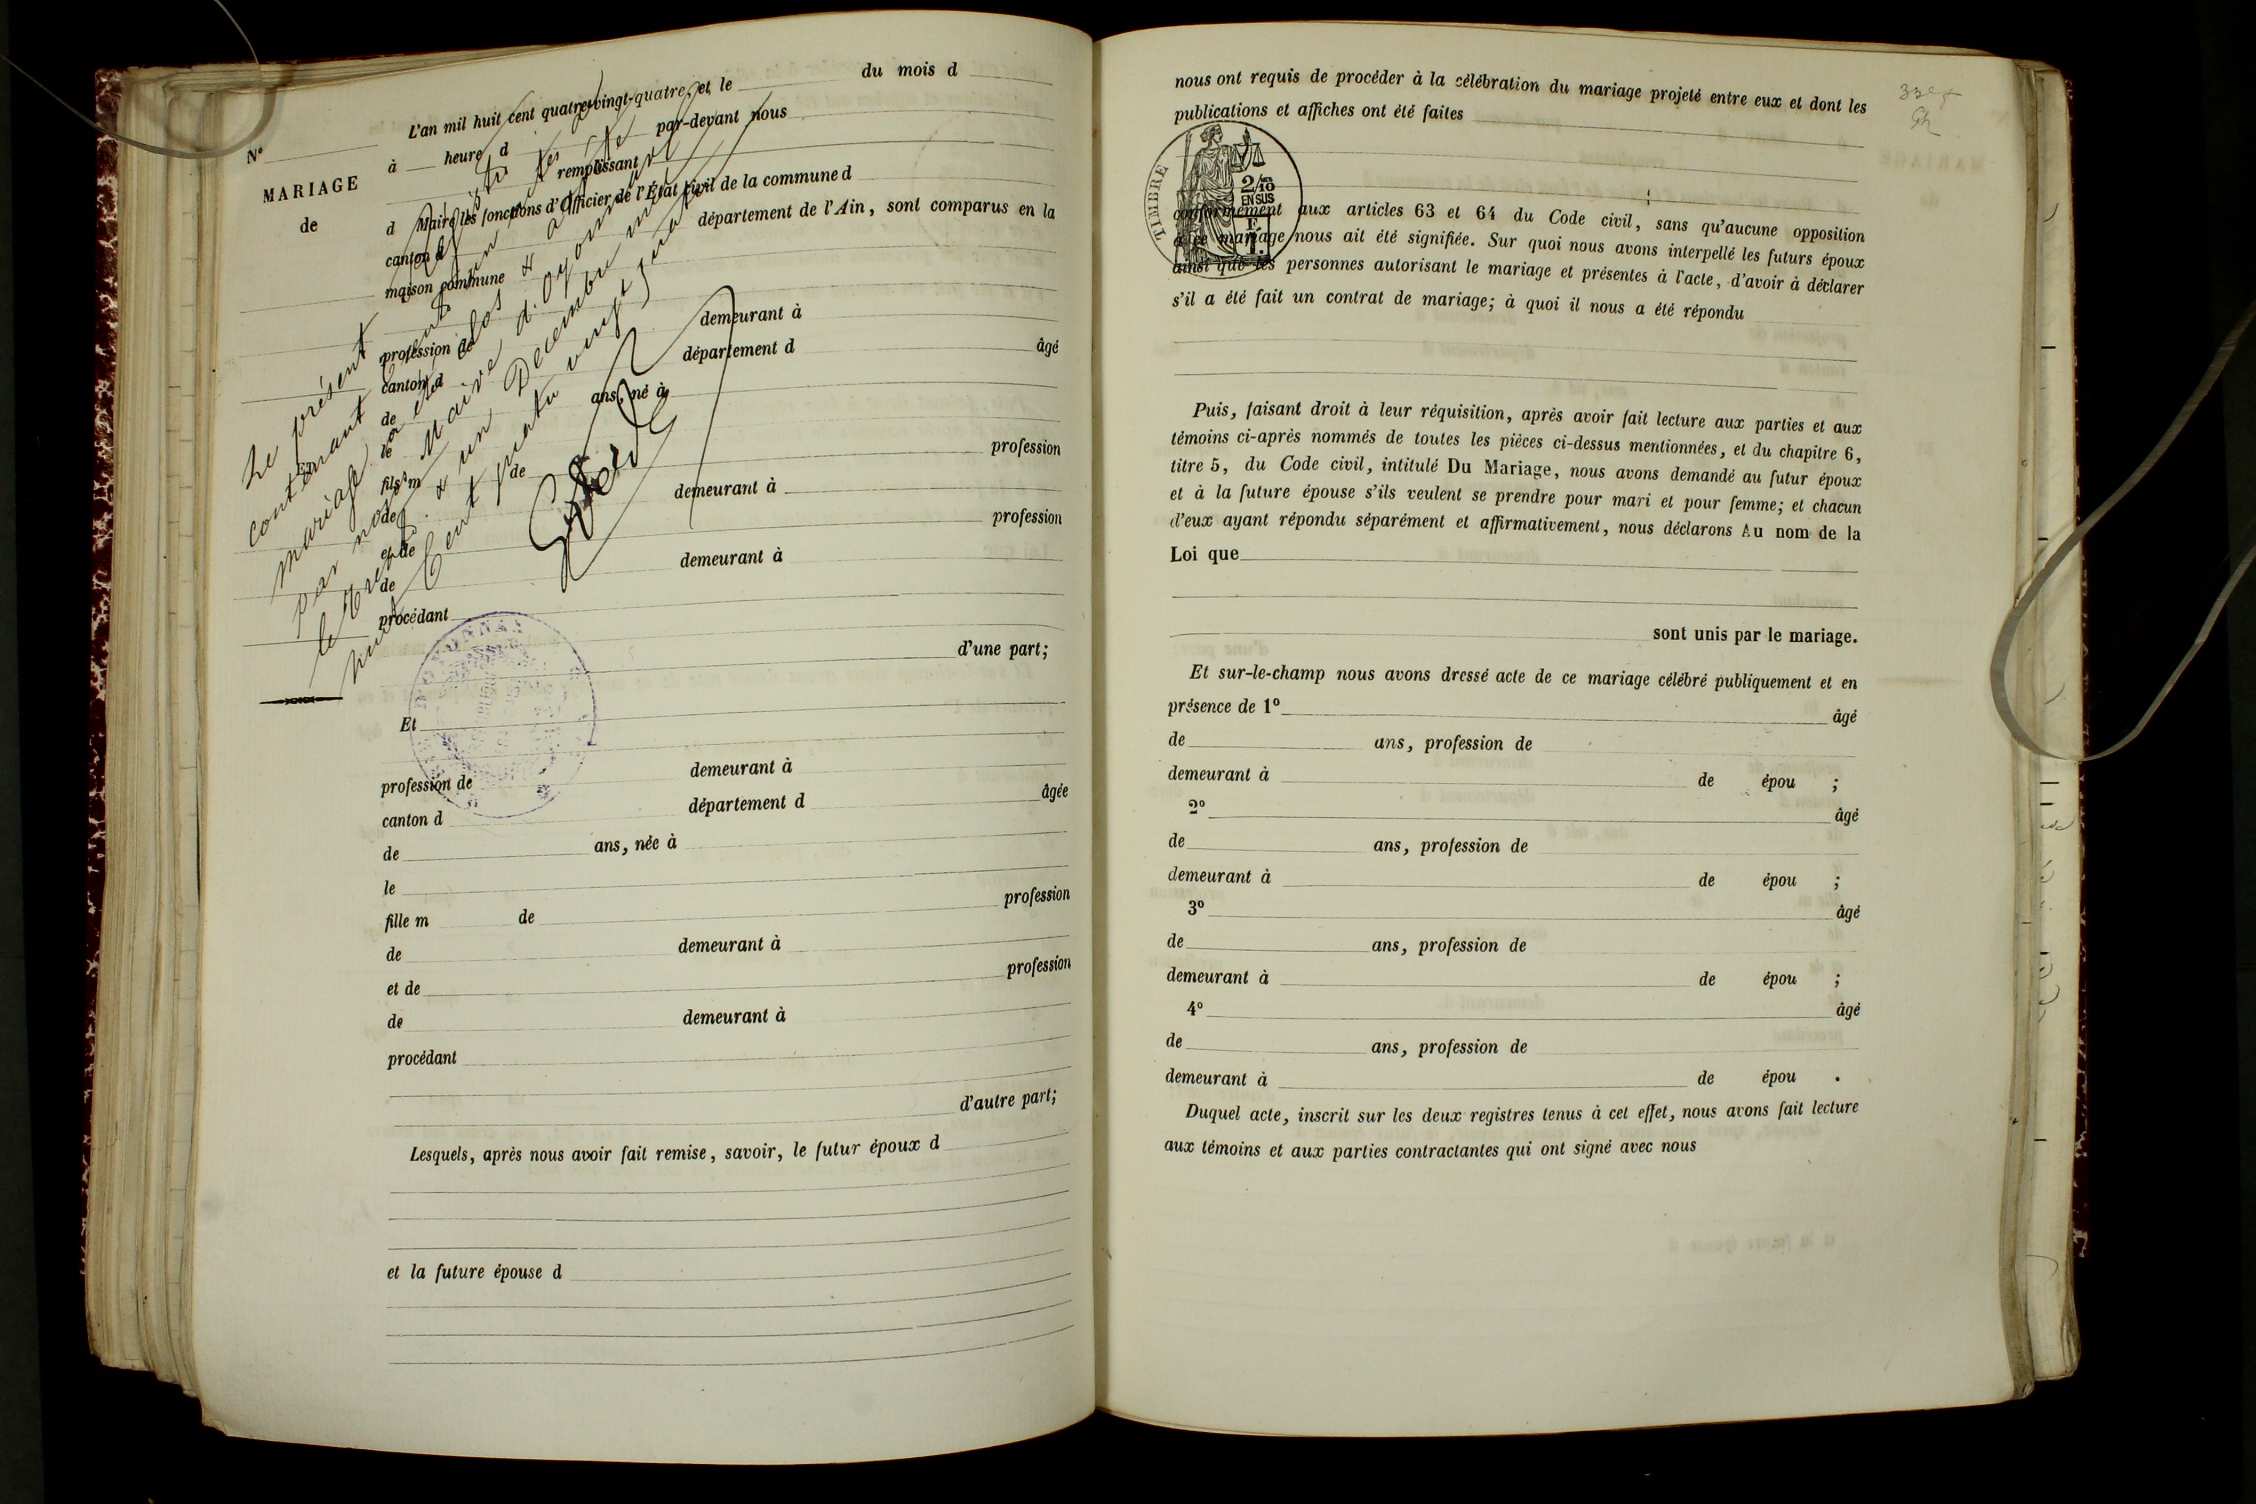 N°
MARIAGE
de
Et
L'an mil huit cent quatre-vingt-quatre, et le du mois d
à heure d par-devant nous
remplissant
d Maire les fonctions d'Officier de l'État civil de la commune d
canton d département de l'Ain, sont comparus en la
maison commune
profession de demeurant à
canton d département d âgé
de ans, né à
le
fils m de profession
de demeurant à
et de profession
de demeurant à
procédant
d'une part;
Et
profession de demeurant à
canton d département d âgée
de ans, née à
le
fille m de profession
de demeurant à
et de profession
de demeurant à
procédant
d'autre part;
Lesquels, après nous avoir fait remise, savoir, le futur époux d
et la future épouse d
Le présent registre des
contenant un acte
mariage a été clos & arrêté
par nous Maire d'Oyonnax
le trente & un Décembre mil
huit cent quatre vingt quatre
nous ont requis de procéder à la célébration du mariage projeté entre eux et dont les
publications et affiches ont été faites
TIMBRE
2/10
EN SUS
conformément aux articles 63 et 64 du Code civil, sans qu'aucune opposition
à ce mariage nous ait été signifiée. Sur quoi nous avons interpellé les futurs époux
ainsi que les personnes autorisant le mariage et présentes à l'acte, d'avoir à déclarer
s'il a été fait un contrat de mariage; à quoi il nous a été répondu
Puis, faisant droit à leur réquisition, après avoir fait lecture aux parties et aux
témoins ci-après nommés de toutes les pièces ci-dessus mentionnées, et du chapitre 6,
titre 5, du Code civil, intitulé Du Mariage, nous avons demandé au futur époux
et à la future épouse s'ils veulent se prendre pour mari et pour femme; et chacun
d'eux ayant répondu séparément et affirmativement, nous déclarons Au nom de la
Loi que
sont unis par le mariage.
Et sur-le-champ nous avons dressé acte de ce mariage célébré publiquement et en
présence de 1° âgé
de ans, profession de
demeurant à de épou ;
2° âgé
de ans, profession de
demeurant à de épou ;
3° âgé
de ans, profession de
demeurant à de épou ;
4° âgé
de ans, profession de
demeurant à de épou .
Duquel acte, inscrit sur les deux registres tenus à cet effet, nous avons fait lecture
aux témoins et aux parties contractantes qui ont signé avec nous